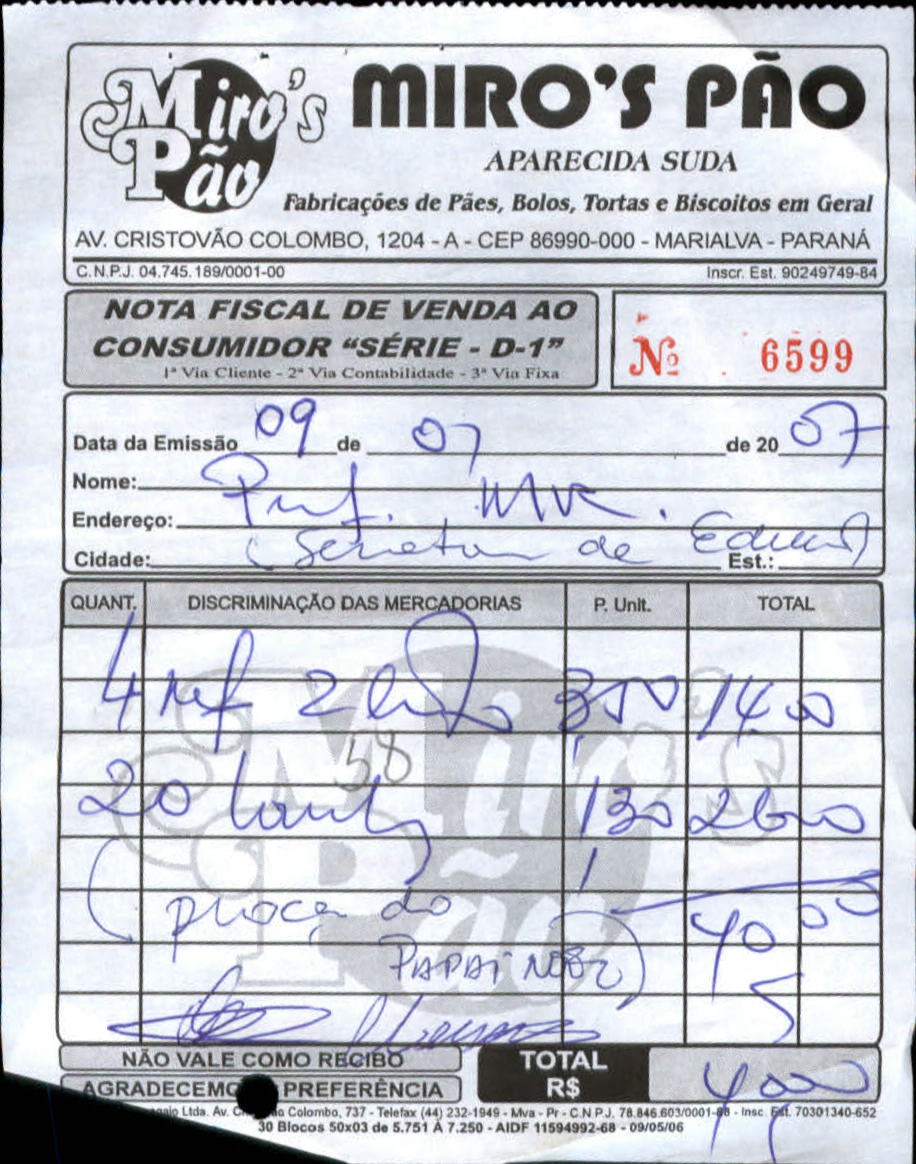 Miro's Pão
MIRO'S PÃO
APARECIDA SUDA
Fabricações de Pães, Bolos, Tortas e Biscoitos em Geral
AV. CRISTOVÃO COLOMBO, 1204 - A - CEP 86990-000 - MARIALVA - PARANÁ
C.N.P.J. 04.745.189/0001-00 Inscr. Est. 90249749-84
NOTA FISCAL DE VENDA AO
CONSUMIDOR “SÉRIE - D-1”
1ª Via Cliente - 2ª Via Contabilidade - 3ª Via Fixa
Nº 6599
Data da Emissão 09 de 07 de 20 07
Nome: Pref. Mva.
Endereço:
Cidade: (Secretaria de Est.:
QUANT. DISCRIMINAÇÃO DAS MERCADORIAS P. Unit. TOTAL
4 ref 2 350 14 00
58
20 130 26 00
do 40 00
PAPAI NOEL)
NÃO VALE COMO RECIBO
AGRADECEMO PREFERÊNCIA
TOTAL
R$ 40 00
Ltda. Av. Colombo, 737 - Telefax (44) 232-1949 - Mva - Pr - C.N.P.J. 78.846.603/0001- - Insc. Est. 70301340-652
30 Blocos 50x03 de 5.751 À 7.250 - AIDF 11594992-68 - 09/05/06